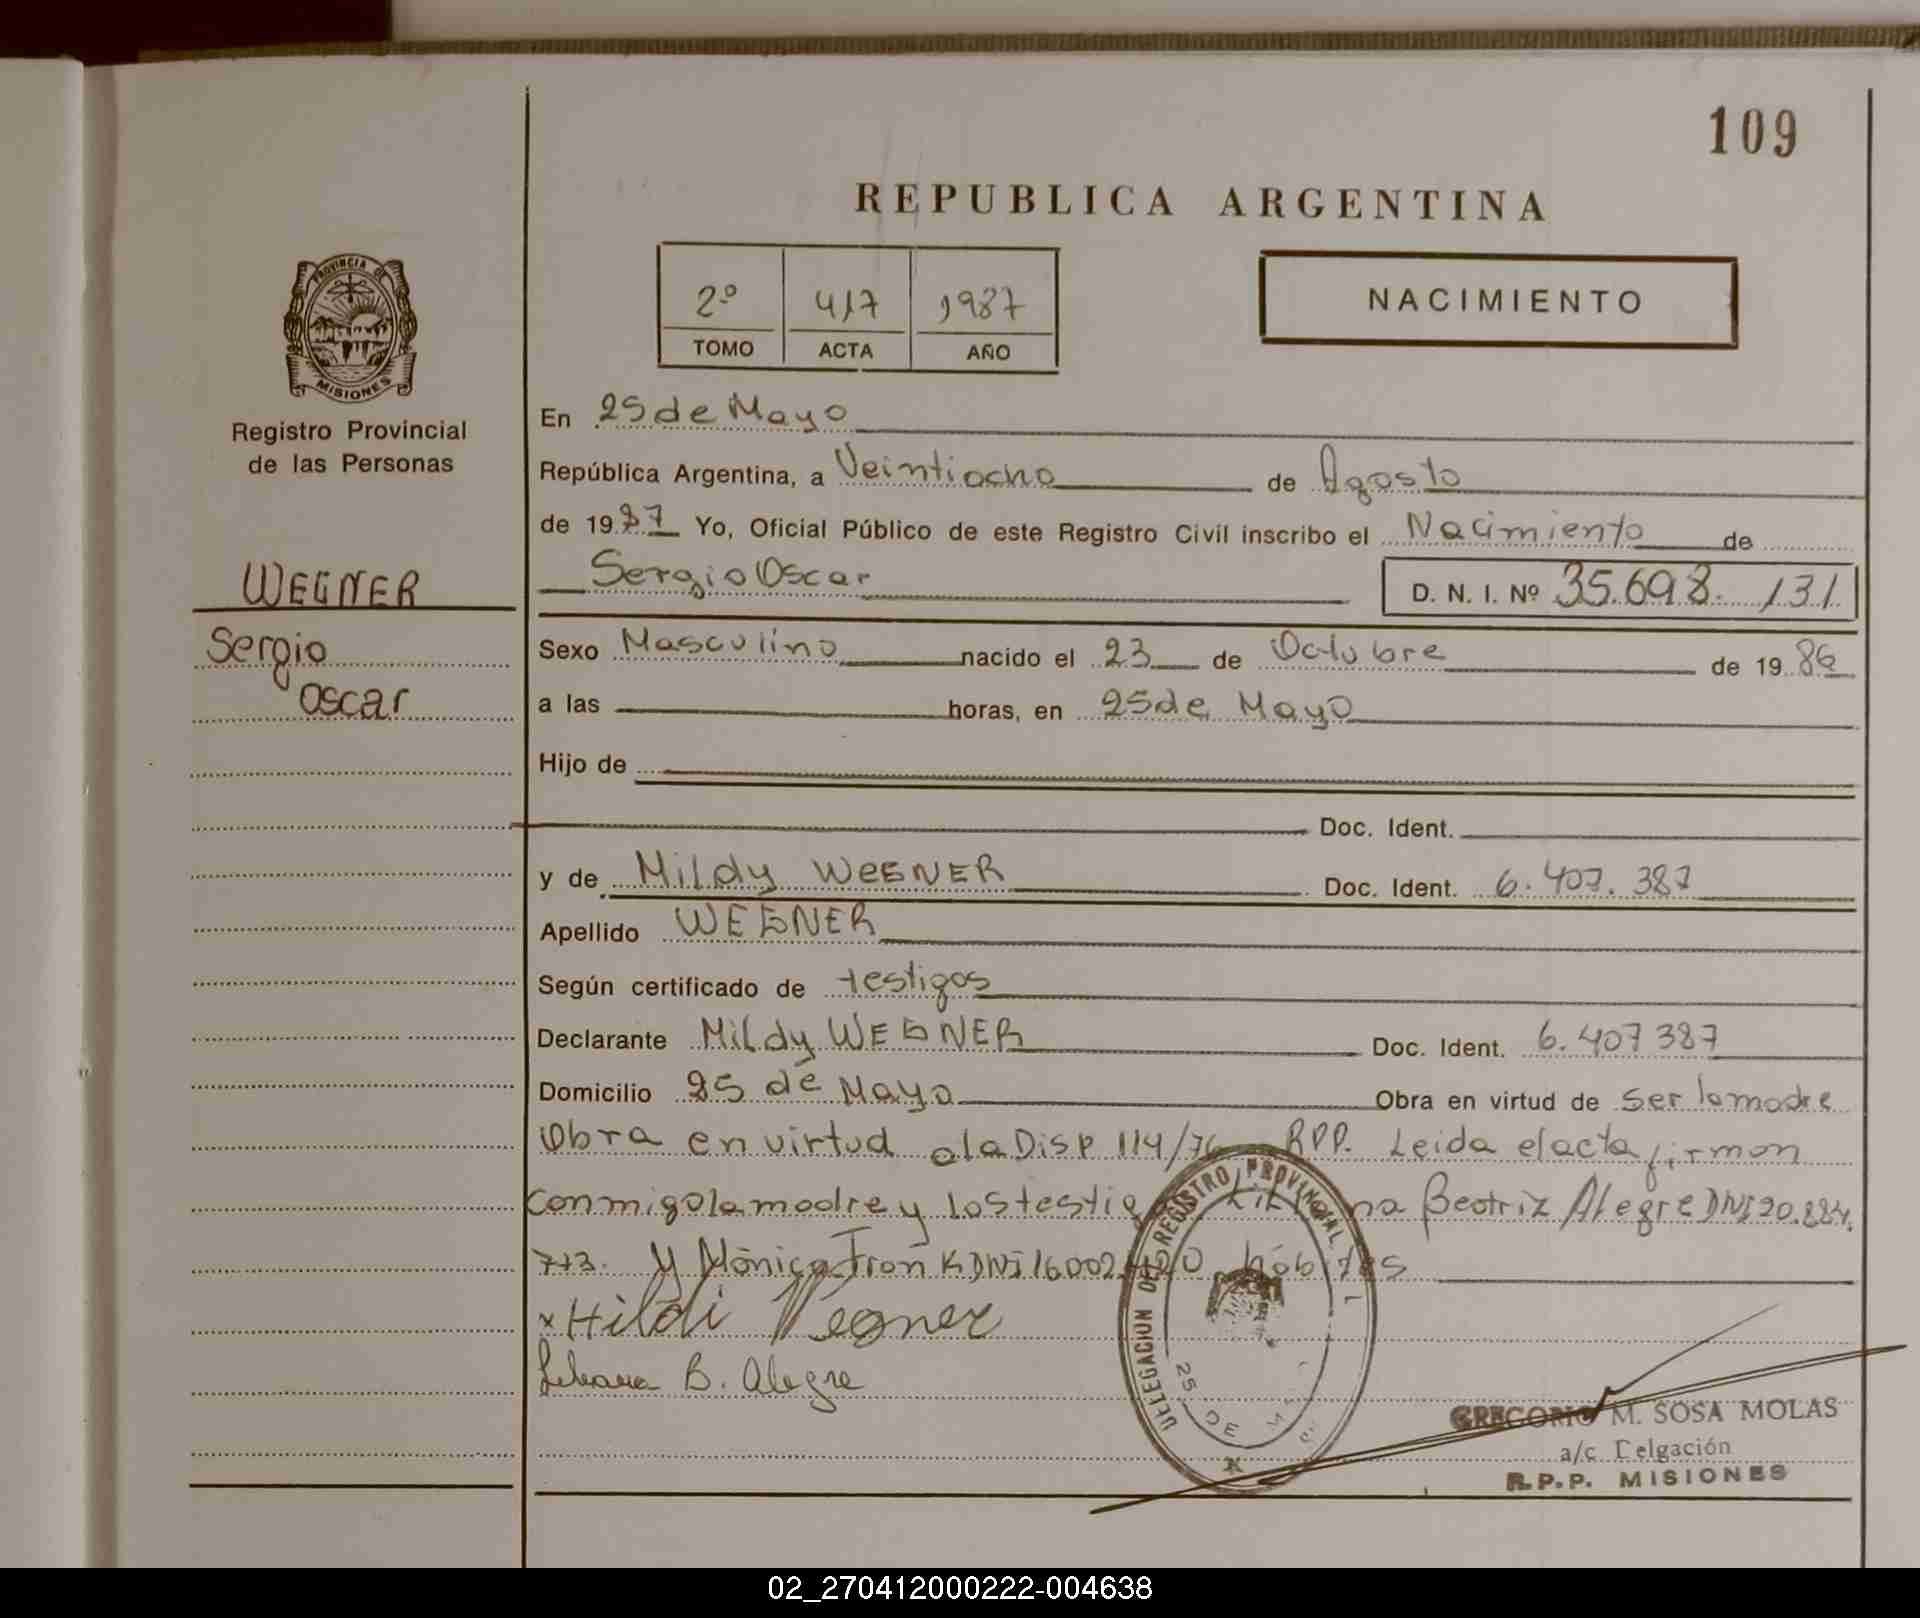 109
REPUBLICA ARGENTINA
2º 417 1987
TOMO ACTA AÑO
NACIMIENTO
PROVINCIA DE
MISIONES
Registro Provincial
de las Personas
WEGNER
Sergio
Oscar
En 25 de Mayo
República Argentina, a Veintiocho de Agosto
de 1987 Yo, Oficial Público de este Registro Civil inscribo el Nacimiento de
Sergio Oscar D. N. I. Nº 35.698.131
Sexo Masculino nacido el 23 de Octubre de 1986
a las horas, en 25 de Mayo
Hijo de
Doc. Ident.
y de Mildy WEGNER Doc. Ident. 6.407.387
Apellido WEGNER
Según certificado de testigos
Declarante Mildy WEGNER Doc. Ident. 6.407387
Domicilio 25 de Mayo Obra en virtud de Ser la madre
Obra en virtud a la Disp 114/76 RPP. Leida el acta firman
conmigo la madre y los testig Liliana Beatriz Alegre DNI 20.884.
713. y Mónica Fron K DNI 16002 hábiles
x Hildi Wegner
Liliana B. Alegre
DELEGACION DEL REGISTRO PROVINCIAL
25 DE M
GREGORIO M. SOSA MOLAS
a/c Delgación
R.P.P. MISIONES
02_270412000222-004638